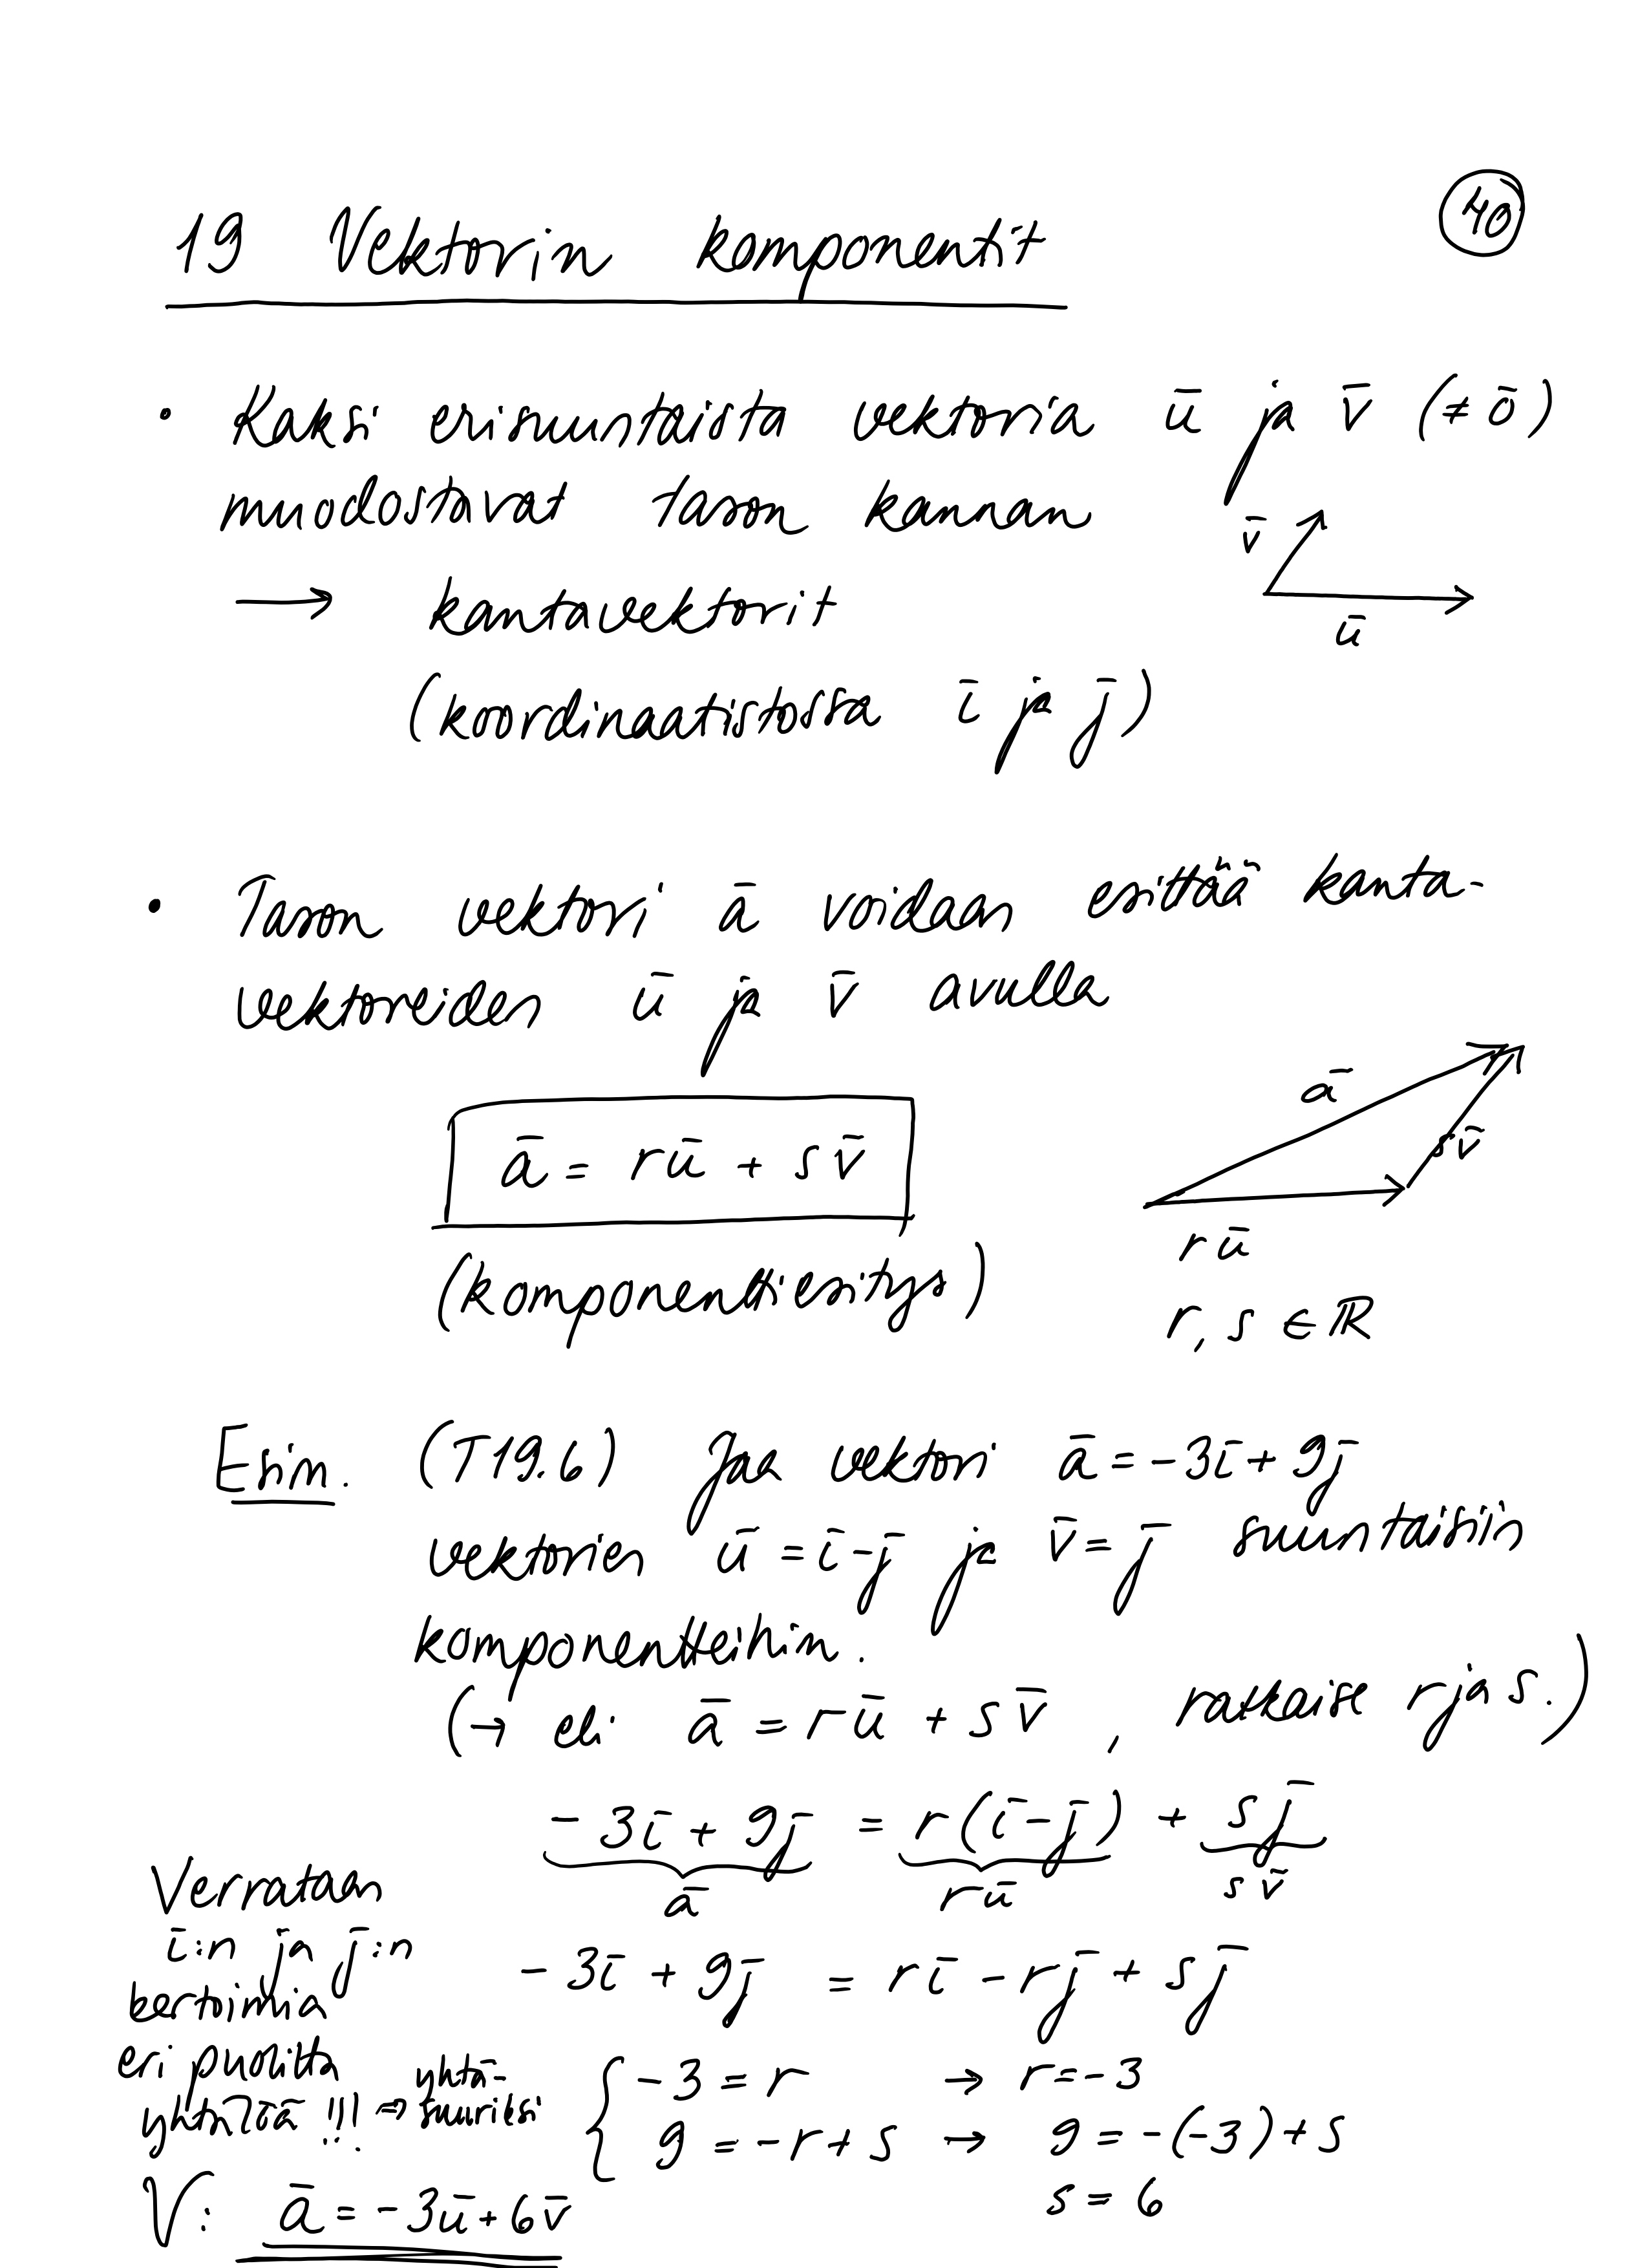 40
19 Vektorin komponentit
• Kaksi erisuuntaista vektoria ū ja v̄ (≠ ō)
muodostavat tason kannan
v̄
→ kantavektorit
ū
(koordinaatistossa ī ja j̄)
• Tason vektori ā voidaan esittää kanta-
vektoreiden ū ja v̄ avulla
ā
ā = rū + sv̄
sv̄
rū
(komponenttiesitys)
r, s ∈ ℝ
Esim. (T19.6) Jaa vektori ā = -3ī + 9j̄
vektorien ū = ī - j̄ ja v̄ = j̄ suuntaisiin
komponentteihin.
(→ eli ā = rū + sv̄, ratkaise r ja s.)
-3ī + 9j̄ = r(ī - j̄) + sj̄
ā rū sv̄
-3ī + 9j̄ = rī - rj̄ + sj̄
Verrataan
ī:n ja j̄:n
kertoimia
eri puolilta
yhtälöä !!! → yhtä-
suuriksi
{ -3 = r → r = -3
9 = -r + s → 9 = -(-3) + s
s = 6
V: ā = -3ū + 6v̄